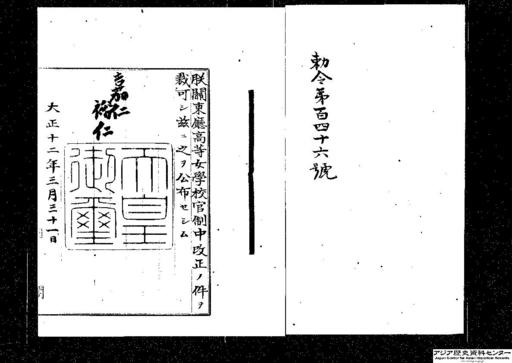 勅令第百四十六號
朕關東廳高等女學校官制中改正ノ件ヲ
裁可シ茲ニ之ヲ公布セシム
嘉仁
裕仁
天皇御璽
大正十二年三月三十一日
アジア歴史資料センター
Japan Center for Asian Historical Records